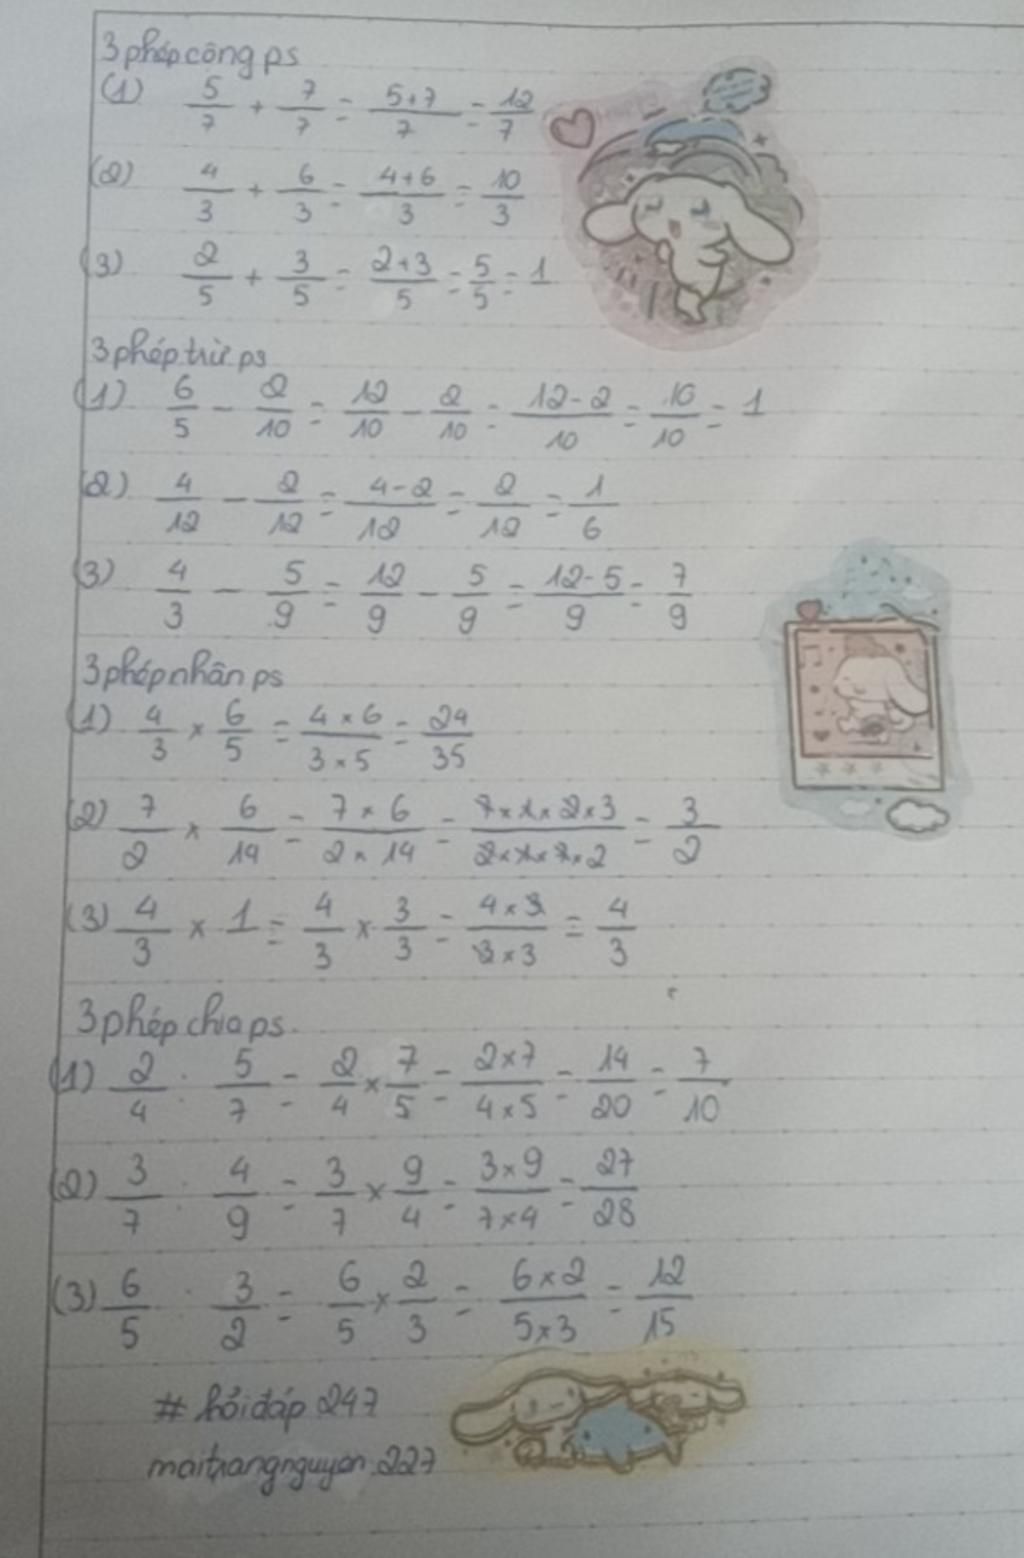 3 phép công ps
(1) 5/7 + 7/7 = 5+7/7 = 12/7
(2) 4/3 + 6/3 = 4+6/3 = 10/3
(3) 2/5 + 3/5 = 2+3/5 = 5/5 = 1
3 phép trừ ps
(1) 6/5 - 2/10 = 12/10 - 2/10 = 12-2/10 = 10/10 = 1
(2) 4/12 - 2/12 = 4-2/12 = 2/12 = 1/6
(3) 4/3 - 5/9 = 12/9 - 5/9 = 12-5/9 = 7/9
3 phép nhân ps
(1) 4/3 × 6/5 = 4×6/3×5 = 24/35
(2) 7/2 × 6/14 = 7×6/2×14 = 7×1×2×3/2×1×7×2 = 3/2
(3) 4/3 × 1 = 4/3 × 3/3 = 4×3/3×3 = 4/3
3 phép chia ps.
(1) 2/4 : 5/7 = 2/4 × 7/5 = 2×7/4×5 = 14/20 = 7/10
(2) 3/7 : 4/9 = 3/7 × 9/4 = 3×9/7×4 = 27/28
(3) 6/5 : 3/2 = 6/5 × 2/3 = 6×2/5×3 = 12/15
# hỏi đáp 247
maitrangnguyen.227